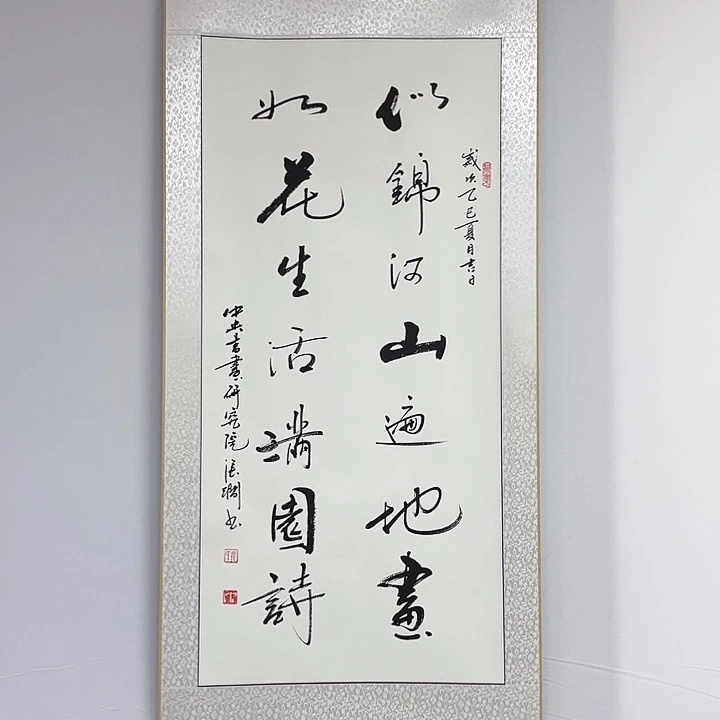 歲次乙巳夏月吉日
似錦河山遍地畫
如花生活满園詩
中央書畫研究院張潤书